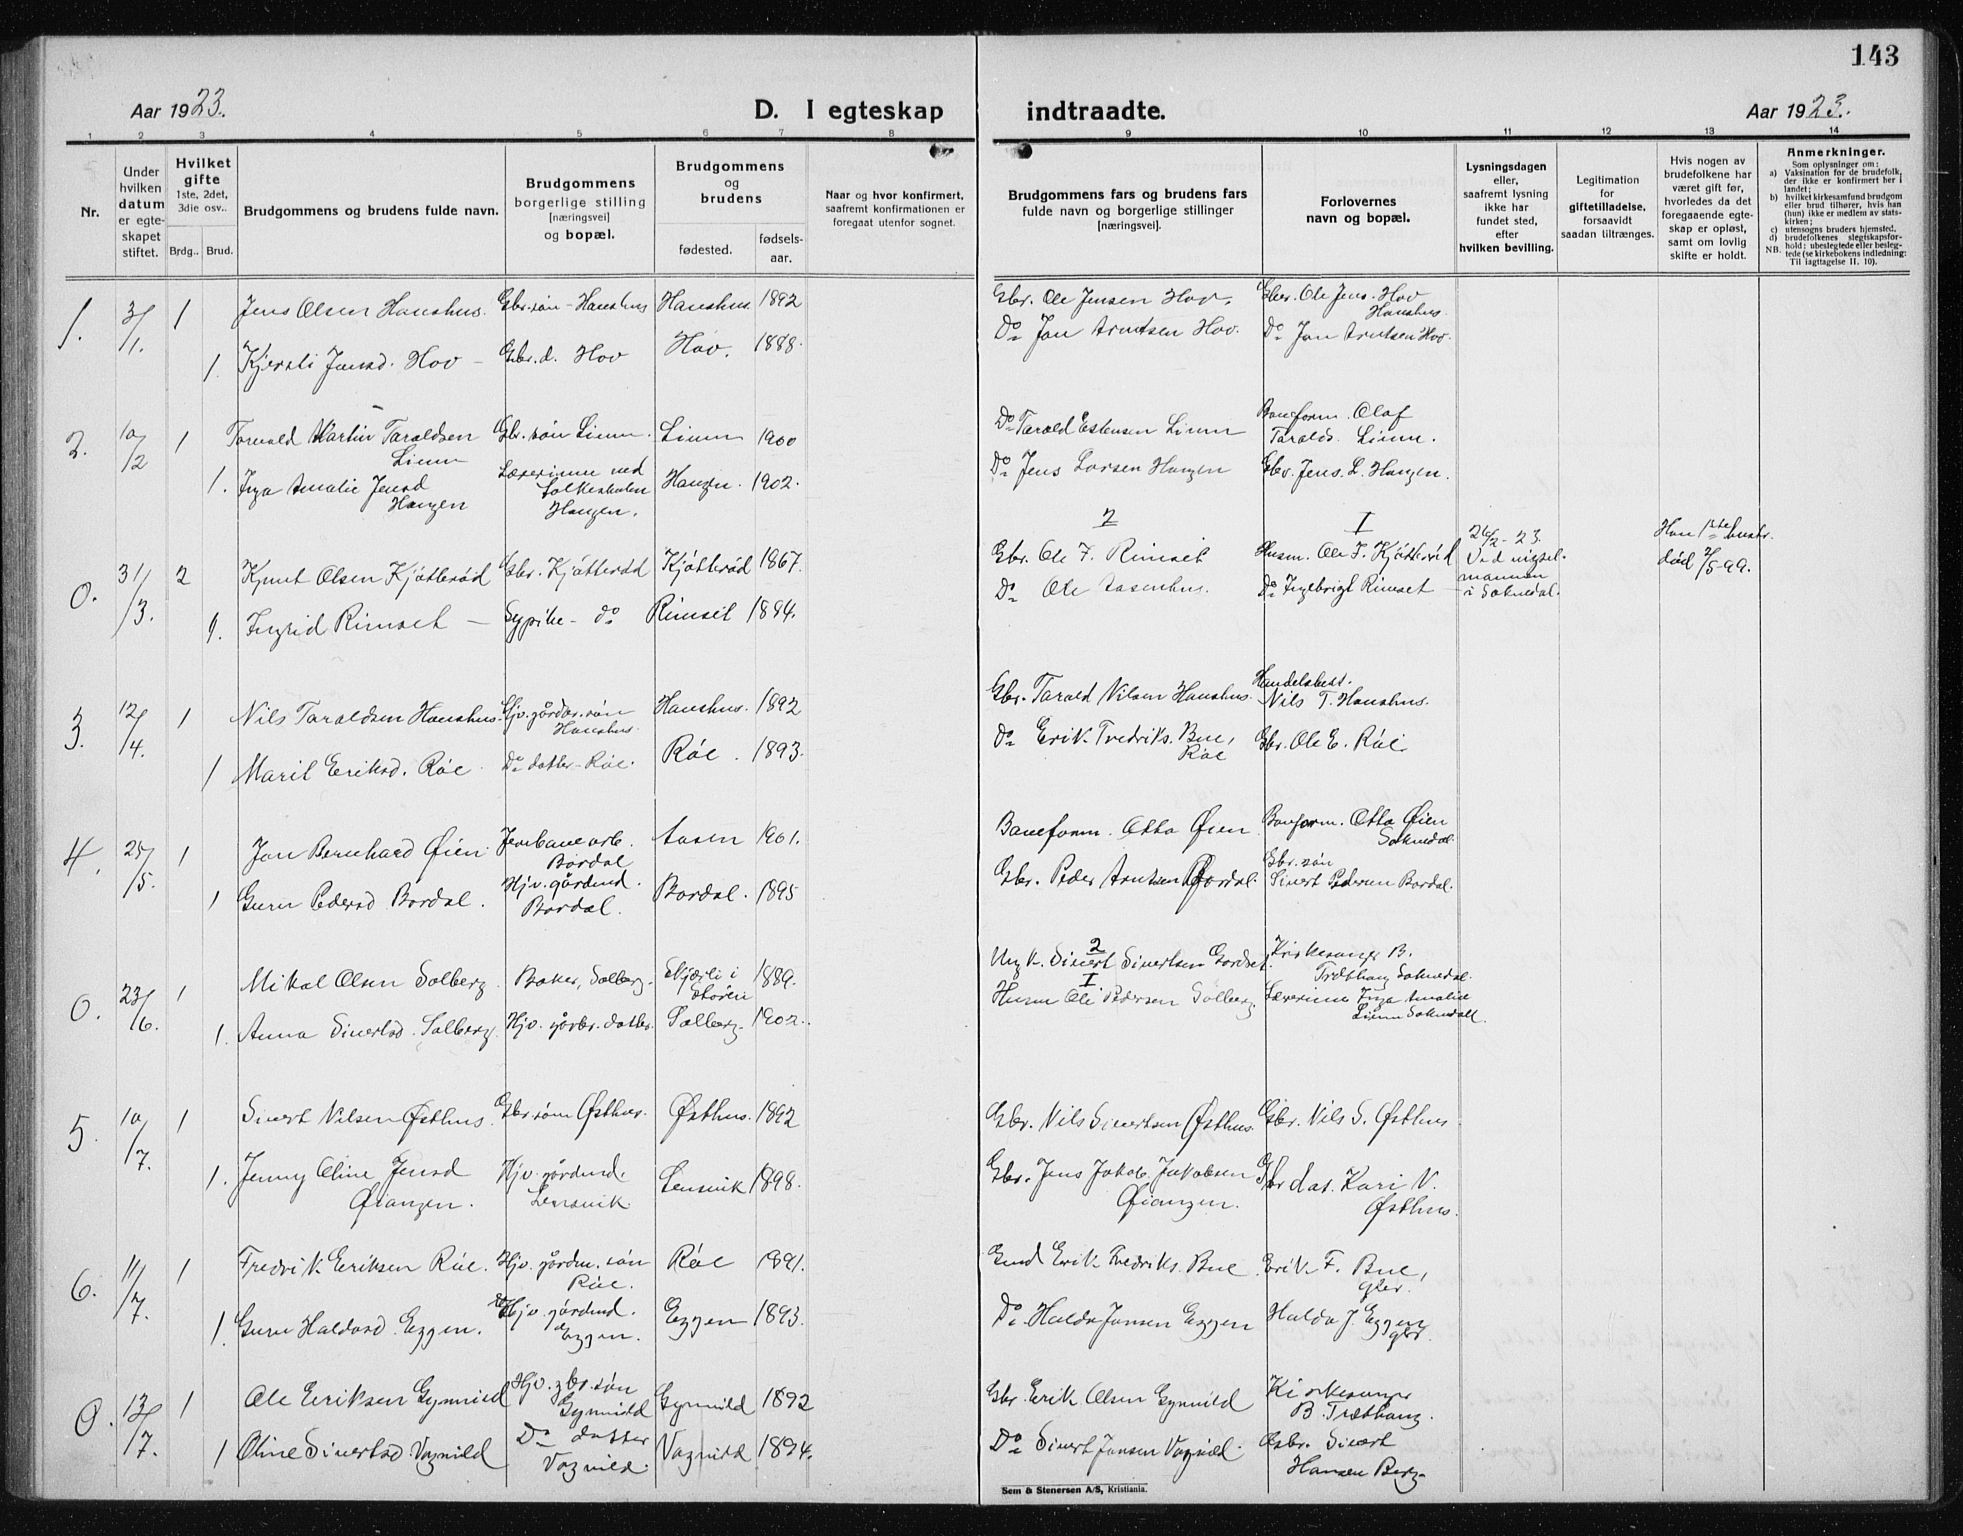 143
Aar 1923.
D. I egteskap indtraadte.
Aar 1923.
1 2 3 4 5 6 7 8 9 10 11 12 13 14
Nr.
Under hvilken datum er egteskapet stiftet.
Hvilket gifte 1ste, 2det, 3die osv..
Brdg.. Brud.
Brudgommens og brudens fulde navn.
Brudgommens borgerlige stilling [næringsvei] og bopæl.
Brudgommens og brudens
fødested.
fødsels-aar.
Naar og hvor konfirmert, saafremt konfirmationen er foregaat utenfor sognet.
Brudgommens fars og brudens fars fulde navn og borgerlige stillinger [næringsvei].
Forlovernes navn og bopæl.
Lysningsdagen eller, saafremt lysning ikke har fundet sted, efter hvilken bevilling.
Legitimation for giftetilladelse, forsaavidt saadan tiltrænges.
Hvis nogen av brudefolkene har været gift før, hvorledes da det foregaaende egteskap er opløst, samt om lovlig skifte er holdt.
Anmerkninger.
Som oplysninger om:
a) Vaksination for de brudefolk, der ikke er konfirmert her i landet;
b) hvilket kirkesamfund brudgom eller brud tilhører, hvis han (hun) ikke er medlem av statskirken;
c) utensogns bruders hjemsted.
d) brudefolkenes slegtskapsforhold; ubeslegtede eller beslegtede (se kirkebokens indledning:
NB. Til iagttagelse II. 10).
1. 3/1. 1 Jens Olsen Haushus. Gbr. søn - Haushus Haushus. 1892 Gbr. Ole Jensen Hov. Gbr. Ole Jens. Hov Haushus.
1. Kjersti Jensd. Hov - Gbr. d. Hov Hov. 1888. Do Jon Arntsen Hov. Do Jon Arntsen Hov.
2. 10/2 1 Torvald Martin Taraldsen Lium Gbr. søn Lium. Lium 1900 Do Tarald Estensen Lium Baneform. Olaf Taralds. Lium.
1. Inga Amalie Jensd Haugen Lærerinne ved folkeskolen Haugen. Haugen. 1902. Do Jens Larsen Haugen Gbr. Jens. L. Haugen.
0. 31/3. 2 Knut Olsen Kjøtterød Gbr. Kjøtterød Kjøtterød 1867. 2 Gbr. Ole F. Rimset I Husm. Ole F. Kjøtterød 26/2-23. Ved missel-mannen i Soknedal. Han 1ste hustr. død 2/5-99.
1. Ingrid Rimset - Sypike - do Rimset 1894. Do Ole Aasenhus. Do Ingebrigt Rimset
3. 12/4. 1 Nils Taraldsen Haushus. Hjv. gårdbr. søn Haushus Haushus. 1892 Gbr. Tarald Nilsen Haushus. Handelsbest. Nils T. Haushus.
1 Marit Eriksd. Røe. Do datter - Røe. Røe. 1893. Do Erik Fredriks. Bue, Røe Gbr. Ole E. Røe.
4. 25/5. 1 Jon Bernhard Øien. Jernbanearb. Bordal Aasen 1901. Baneform. Otto Øien Banform. Otto Øien Soknedal.
1 Guru Pedersd Bordal. Hjv. gårdmd. Bordal. Bordal. 1895 Gbr. Peder Arntsen Bordal. Gbr. søn Sivert Pedersen Bordal.
0. 23/6. 1 Mikal Olsen Solberg Baker, Solberg. Skjærli i Støren 1889. 2 Ungk. Sivert Sivertsen Gordset. Kirkesanger B. Træthaug Soknedal.
1. Anna Sivertsd. Solberg. Hjv. gårbr. datter. Solberg. 1902. I Husm Ole Pedersen Solberg. Lærerinne Inga Amalie Lium Soknedal.
5. 10/7. 1 Sivert Nilsen Østhus. Gbr. søn Østhus. Østhus. 1892 Gbr. Nils Sivertsen Østhus. Gbr. Nils S. Østhus
1. Jenny Oline Jensd Øiangen. Hjv. gårdmd. Lensvik Lensvik 1898. Gbr. Jens Jakob Jakobsen Øiangen. Gbr dat. Kari N. Østhus.
6. 11/7. 1 Fredrik Eriksen Røe. Hjv. gårdm. søn Røe. Røe 1891. Gmd Erik Fredriks. Bue Erik F. Bue, gbr.
1. Guru Haldosd. Eggen. Hjv. gårdmd. Eggen. Eggen 1893. Do. Haldo Jonsen Eggen Haldo J. Eggen gbr.
0. 13/7. 1 Ole Eriksen Gynnild Hjv. gbr. søn Gynnild Gynnild 1892 Gbr. Erik Olsen Gynnild Kirkesanger B. Træthaug.
1 Oline Sivertsd. Vagnild Do datter Vagnild. Vagnild 1894. Do Sivert Jonsen Vagnild. Gbr. Sivert Hansen Berg
Sem & Stenersen A/S, Kristiania.